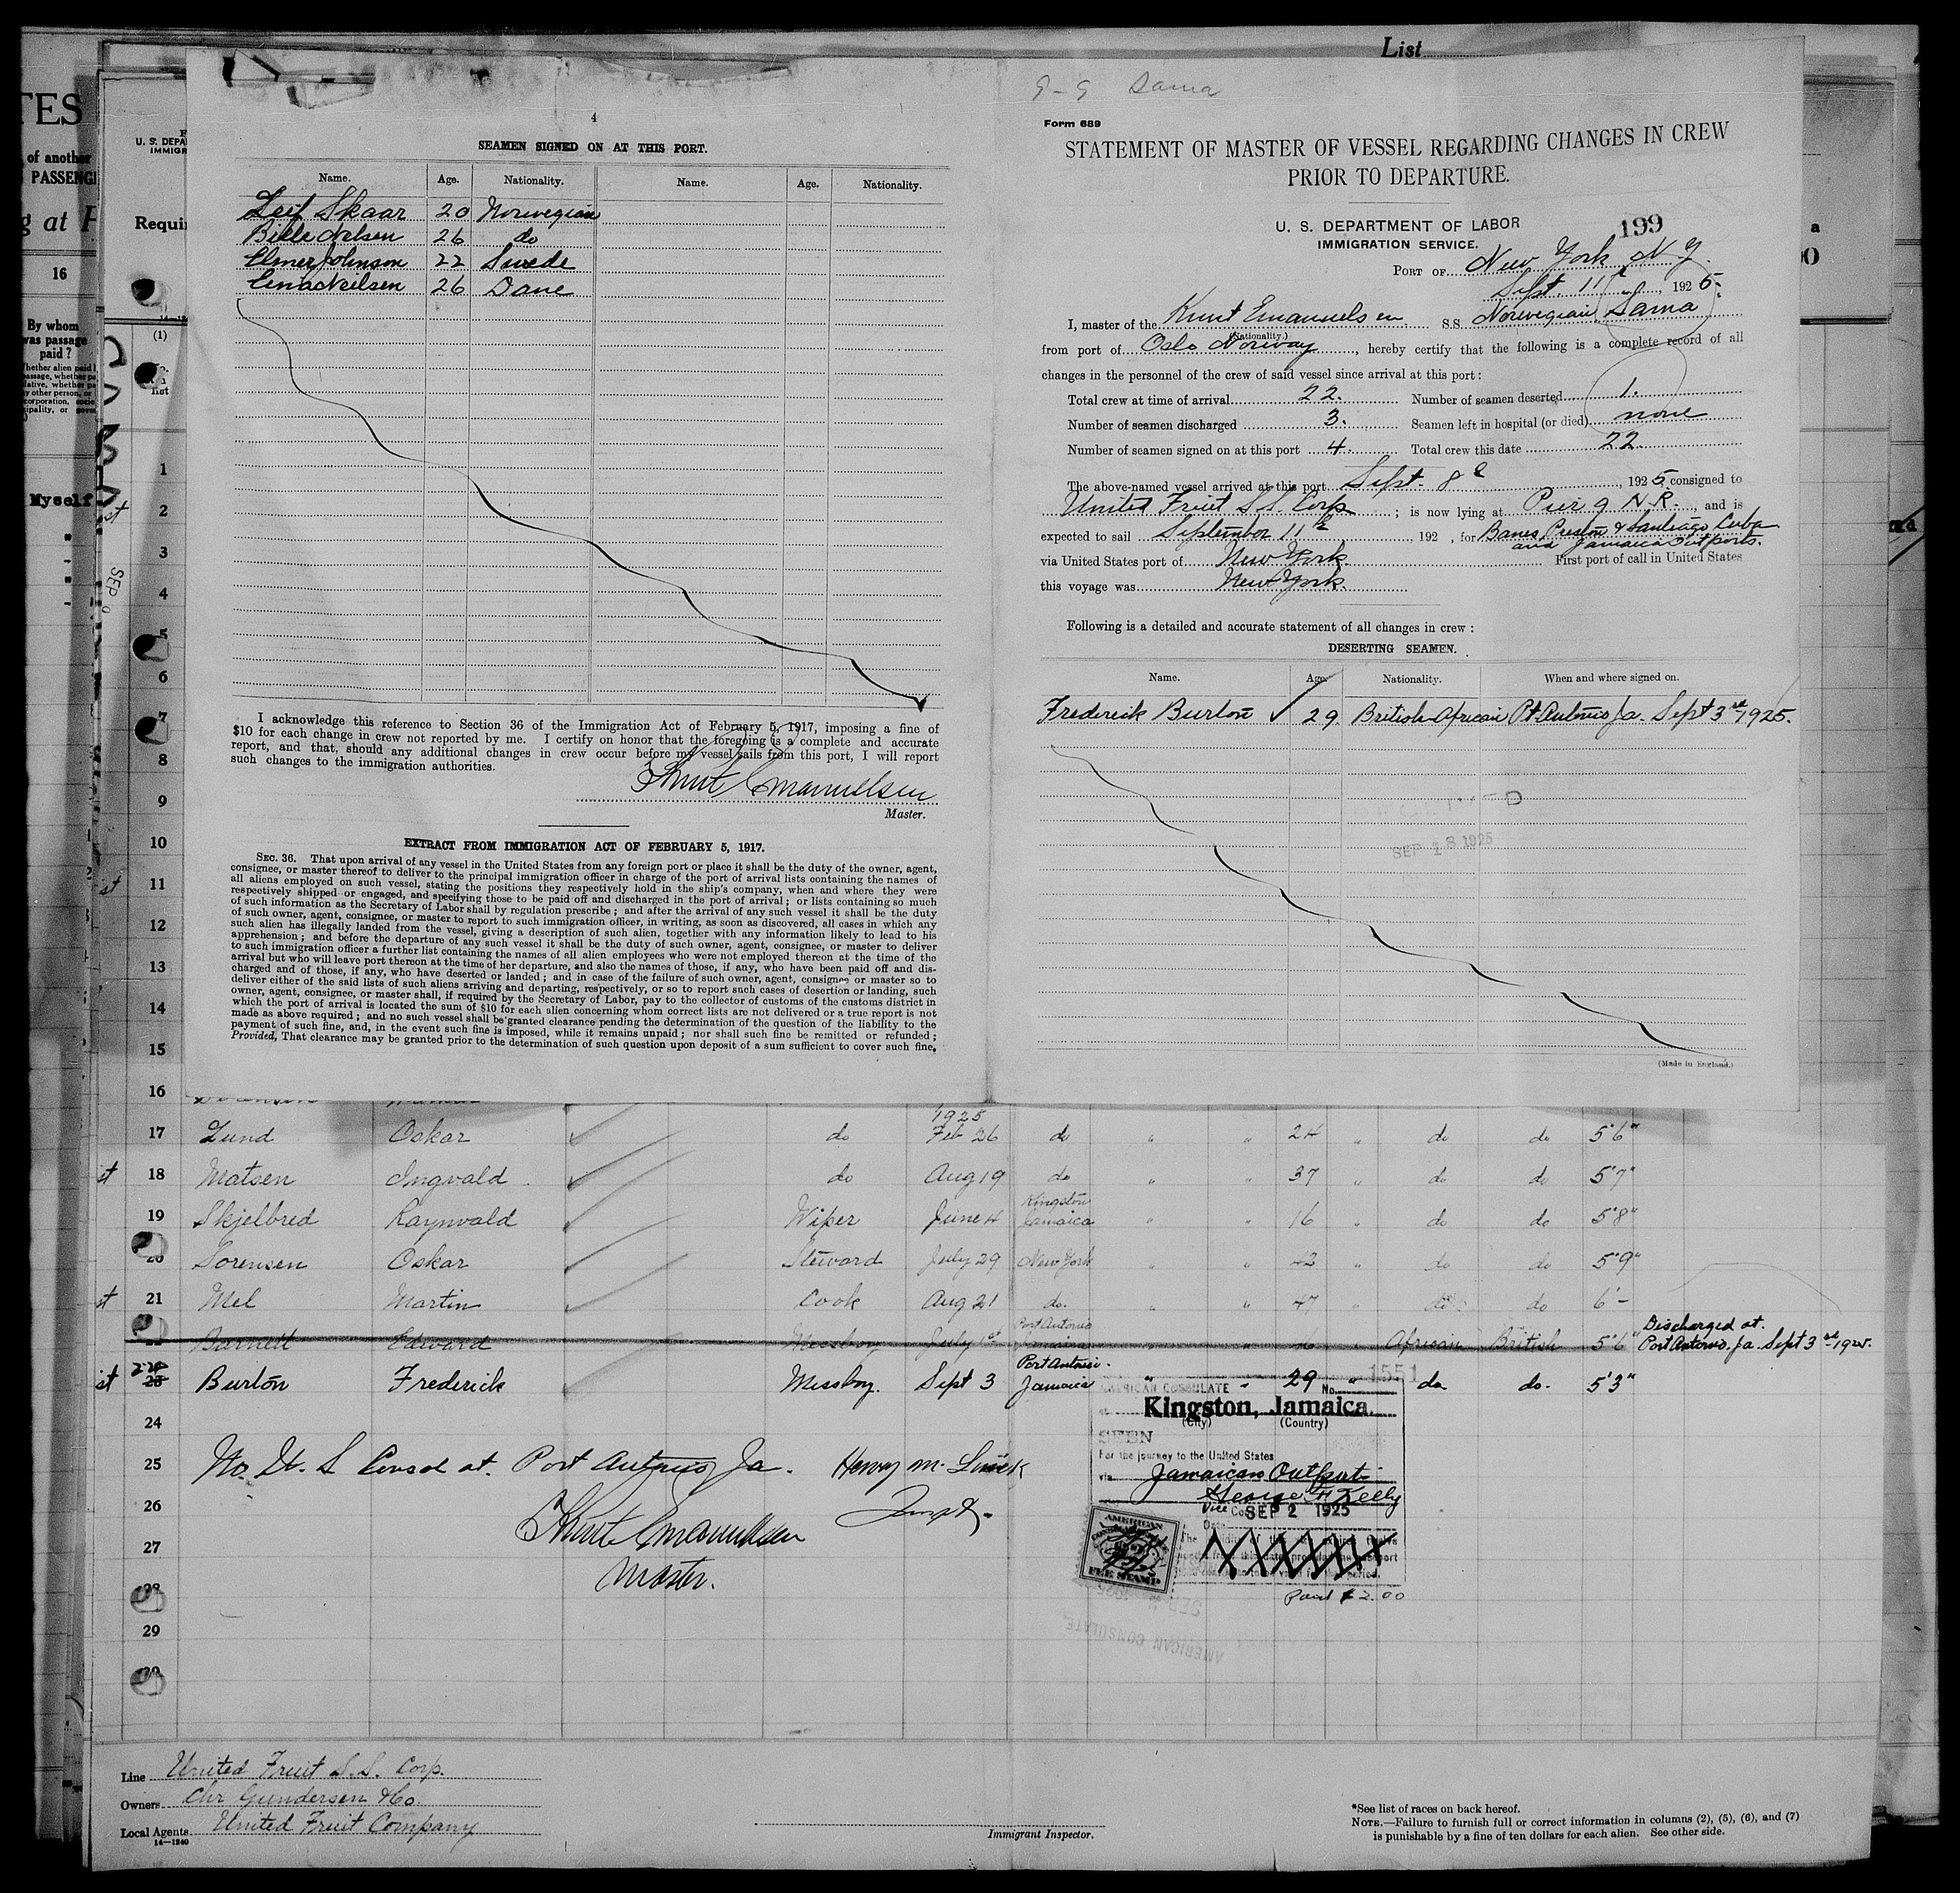 List
TES
of another
PASSENG
g at P
16
By whom
was passage
paid?
Myself
U. S. DEPA
IMMIGR
Requi
(1)
list
SEP
4
SEAMEN SIGNED ON AT THIS PORT.
Name. Age. Nationality. Name. Age. Nationality.
Leif Skaar 20 Norwegian
Bille Nelsen 26 do
Elmer Johnson 22 Swede
Neilsen 26 Dane
I acknowledge this reference to Section 36 of the Immigration Act of February 5, 1917, imposing a fine of
$10 for each change in crew not reported by me. I certify on honor that the foregoing is a complete and accurate
report, and that, should any additional changes in crew occur before my vessel sails from this port, I will report
such changes to the immigration authorities.
Knut Emanuelsen
Master.
EXTRACT FROM IMMIGRATION ACT OF FEBRUARY 5, 1917.
SEC. 36. That upon arrival of any vessel in the United States from any foreign port or place it shall be the duty of the owner, agent,
consignee, or master thereof to deliver to the principal immigration officer in charge of the port of arrival lists containing the names of
all aliens employed on such vessel, stating the positions they respectively hold in the ship's company, when and where they were
respectively shipped or engaged, and specifying those to be paid off and discharged in the port of arrival; or lists containing so much
of such information as the Secretary of Labor shall by regulation prescribe; and after the arrival of any such vessel it shall be the duty
of such owner, agent, consignee, or master to report to such immigration officer, in writing, as soon as discovered, all cases in which any
such alien has illegally landed from the vessel, giving a description of such alien, together with any information likely to lead to his
apprehension; and before the departure of any such vessel it shall be the duty of such owner, agent, consignee, or master to deliver
to such immigration officer a further list containing the names of all alien employees who were not employed thereon at the time of the
arrival but who will leave port thereon at the time of her departure, and also the names of those, if any, who have been paid off and dis-
charged and of those, if any, who have deserted or landed; and in case of the failure of such owner, agent, consignee or master so to
deliver either of the said lists of such aliens arriving and departing, respectively, or so to report such cases of desertion or landing, such
owner, agent, consignee, or master shall, if required by the Secretary of Labor, pay to the collector of customs of the customs district in
which the port of arrival is located the sum of $10 for each alien concerning whom correct lists are not delivered or a true report is not
made as above required; and no such vessel shall be granted clearance pending the determination of the question of the liability to the
payment of such fine, and, in the event such fine is imposed, while it remains unpaid; nor shall such fine be remitted or refunded;
Provided, That clearance may be granted prior to the determination of such question upon deposit of a sum sufficient to cover such fine.
9-9 Sama
Form 689
STATEMENT OF MASTER OF VESSEL REGARDING CHANGES IN CREW
PRIOR TO DEPARTURE.
U. S. DEPARTMENT OF LABOR
IMMIGRATION SERVICE.
199
PORT OF New York N.Y.
Sept. 11, 1925.
I, master of the Knut Emanuelsen S.S. Norwegian Sama
(Nationality.)
from port of Oslo Norway, hereby certify that the following is a complete record of all
changes in the personnel of the crew of said vessel since arrival at this port:
Total crew at time of arrival 22. Number of seamen deserted 1.
Number of seamen discharged 3. Seamen left in hospital (or died) none
Number of seamen signed on at this port 4. Total crew this date 22.
The above-named vessel arrived at this port Sept. 8, 1925 consigned to
United Fruit S.S. Corp; is now lying at Pier 9 N.R., and is
expected to sail September 11, 192 , for Banes, Preston & Santiago Cuba
and Jamaica Outports.
via United States port of New York. First port of call in United States
this voyage was New York.
Following is a detailed and accurate statement of all changes in crew:
DESERTING SEAMEN.
Name. Age. Nationality. When and where signed on.
Frederick Burton 29 British African Pt. Antonio Ja. Sept 3rd 1925.
SEP 18 1925
(Made in England.)
a
1
2
3
4
5
6
7
8
9
10
11
12
13
14
15
16
1925
17 Lund Oskar do Feb 26 do " " 24 " do do 5'6"
18 Matsen Ingvald do Aug 19 do " " 37 " do do 5'7"
19 Skjelbred Raynvald Wiper June 4 Kingston Jamaica " " 16 " do do 5'8"
20 Sorensen Oskar Steward July 29 New York " " 42 " do do 5'9"
21 Mel Martin Cook Aug 21 do. " " 47 " do do 6'-
Barnett Edward Messboy July 1st Port Antonio Jamaica African British 5'6" Discharged at
Port Antonio, Ja. Sept 3rd 1925.
Burton Frederick Messboy. Sept 3 Port Antonio Jamaica " " 29 " do do. 5'3"
1551
AMERICAN CONSULATE No.
Kingston, Jamaica.
(City) (Country)
SEEN
For the journey to the United States
via Jamaican Outport
George H Kelly
Vice Co
SEP 2 1925
Date
AMERICAN
FEE STAMP
Paid $2.00
AMERICAN CONSULATE
24
25 No. U. S Consul at. Port Antonio Ja.
26
27
Knut Emanuelsen
Master.
28
29
30
Line United Fruit S.S. Corp.
Owners Chr Gundersen & Co
Local Agents United Fruit Company
14—1240
Immigrant Inspector.
*See list of races on back hereof.
NOTE.—Failure to furnish full or correct information in columns (2), (5), (6), and (7)
is punishable by a fine of ten dollars for each alien. See other side.